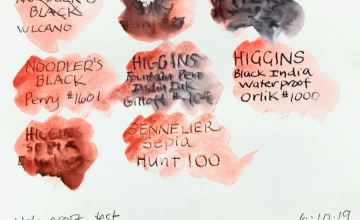 NOODLER'S
BLACK
NOODLER'S
BLACK
Perry #1601
HIGGINS
Fountain Pen
India Ink
HIGGINS
Black India
Waterproof
Orlik #1000
HIGGINS
SEPIA
SENNELIER
Sepia
Hunt 100
test
6-10-19